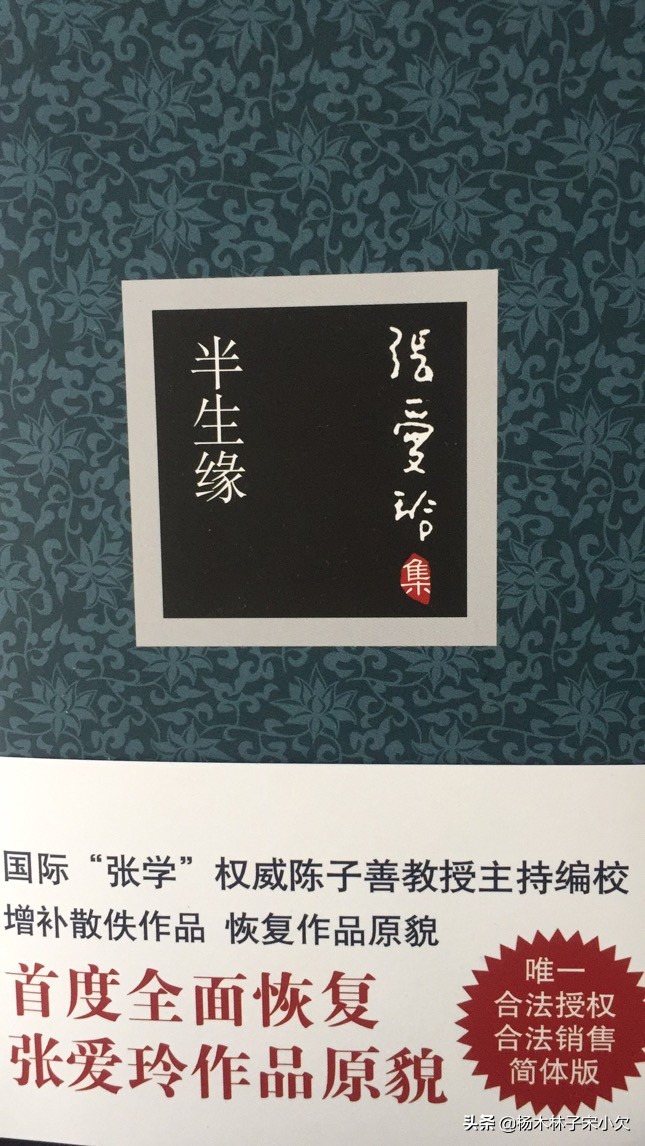 张爱玲
集
半生缘
国际“张学”权威陈子善教授主持编校
增补散佚作品 恢复作品原貌
首度全面恢复
张爱玲作品原貌
唯一
合法授权
合法销售
简体版
头条 @杨木林子宋小欠